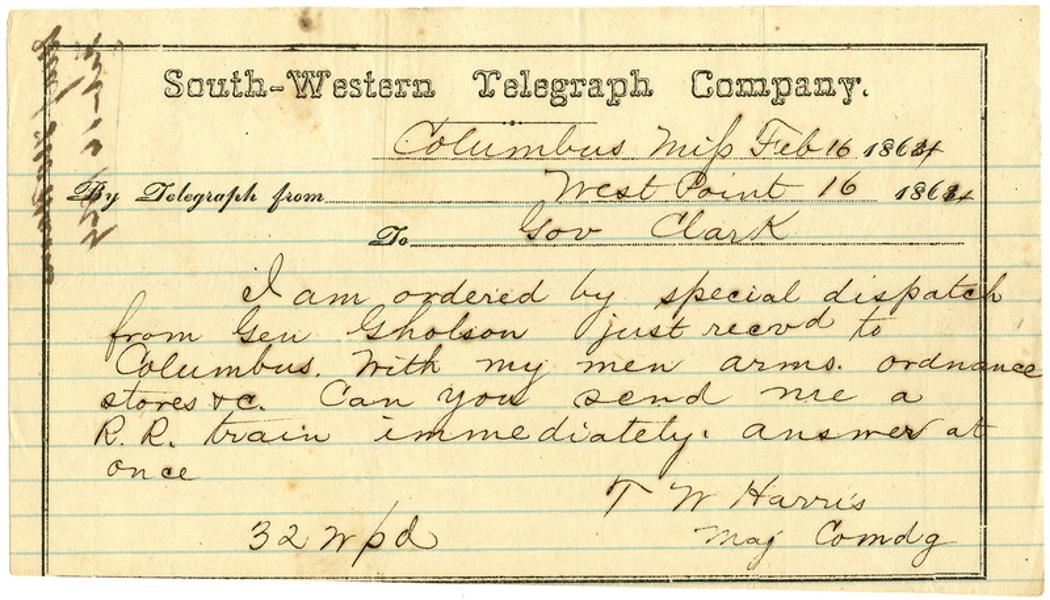 South-Western Telegraph Company.
Columbus Miss Feb 16 1864
By Telegraph from West Point 16 1864
To Gov Clark
I am ordered by special dispatch
from Gen Gholson just recvd to
Columbus. With my men arms. ordnance
stores &c. Can you send me a
R. R. train immediately. answer at
once
T W Harris
Maj Comdg
32 W pd